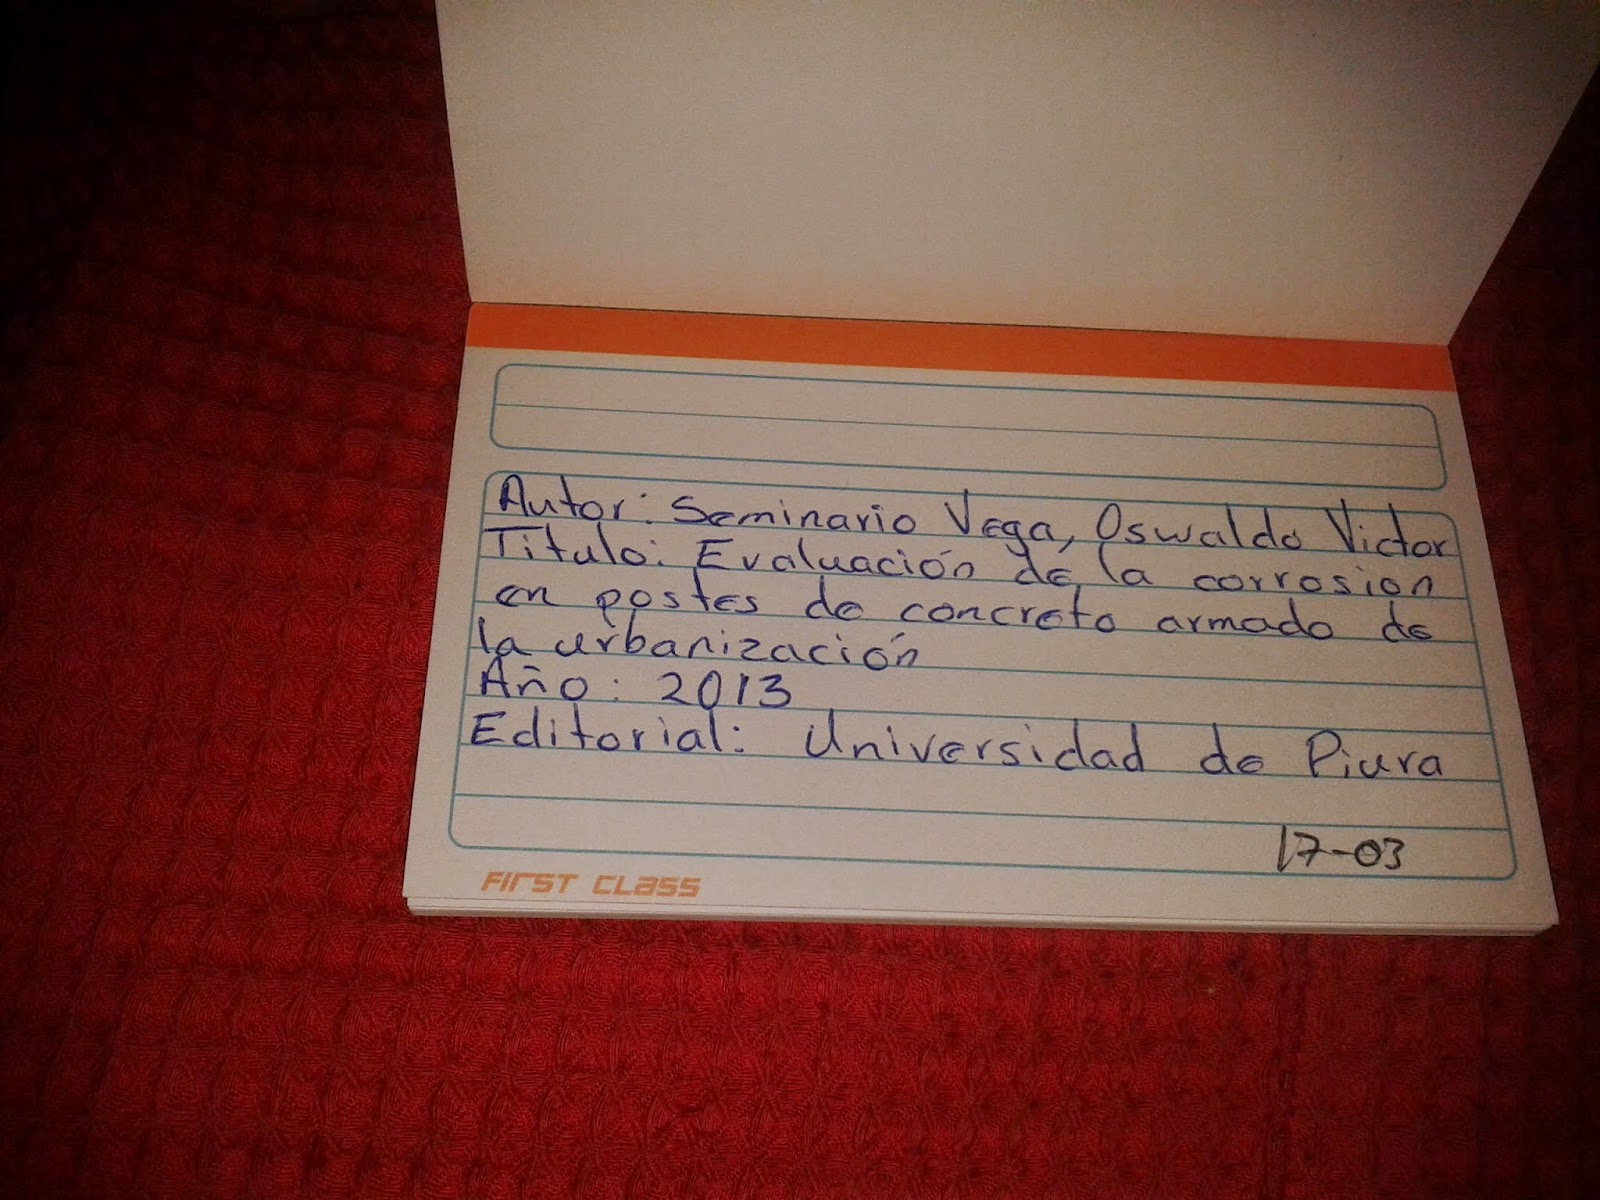 Autor: Seminario Vega, Oswaldo Victor
Titulo: Evaluación de la corrosion
en postes de concreto armado de
la urbanización
Año: 2013
Editorial: Universidad de Piura
17-03
FIRST CLASS